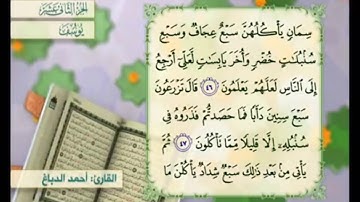 الجزء الثاني عشر
يوسف
سِمَانٍ يَأْكُلُهُنَّ سَبْعٌ عِجَافٌ وَسَبْعِ
سُنۢبُلَٰتٍ خُضْرٍ وَأُخَرَ يَابِسَٰتٍ لَّعَلِّىٓ أَرْجِعُ
إِلَى ٱلنَّاسِ لَعَلَّهُمْ يَعْلَمُونَ ٤٦ قَالَ تَزْرَعُونَ
سَبْعَ سِنِينَ دَأَبًا فَمَا حَصَدتُّمْ فَذَرُوهُ فِى
سُنۢبُلِهِۦٓ إِلَّا قَلِيلًا مِّمَّا تَأْكُلُونَ ٤٧ ثُمَّ
يَأْتِى مِنۢ بَعْدِ ذَٰلِكَ سَبْعٌ شِدَادٌ يَأْكُلْنَ مَا
القارئ: أحمد الدباغ